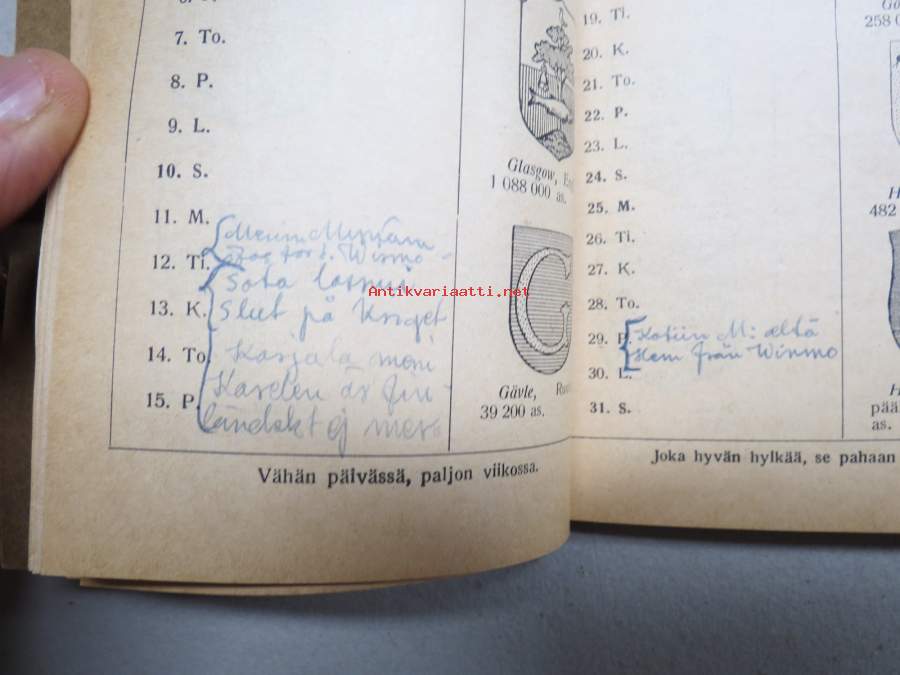 7. To.
8. P.
9. L.
10. S.
11. M.
12. Ti.
13. K.
14. To
15. P.
Menin Mynämä
för t. Winmo
Sota loppui
Slut på Kriget
Karjala meni
Karelen är fin-
ländskt ej mera
Vähän päivässä, paljon viikossa.
Glasgow,
1 088 000 as.
Gävle,
39 200 as.
19. Ti.
20. K.
21. To.
22. P.
23. L.
24. S.
25. M.
26. Ti.
27. K.
28. To.
29. P.
30. L.
31. S.
Kotiin M:ältä
Hem från Winmo
Joka hyvän hylkää, se pahaan
258 0
482
pää
as.
Antikvariaatti.net